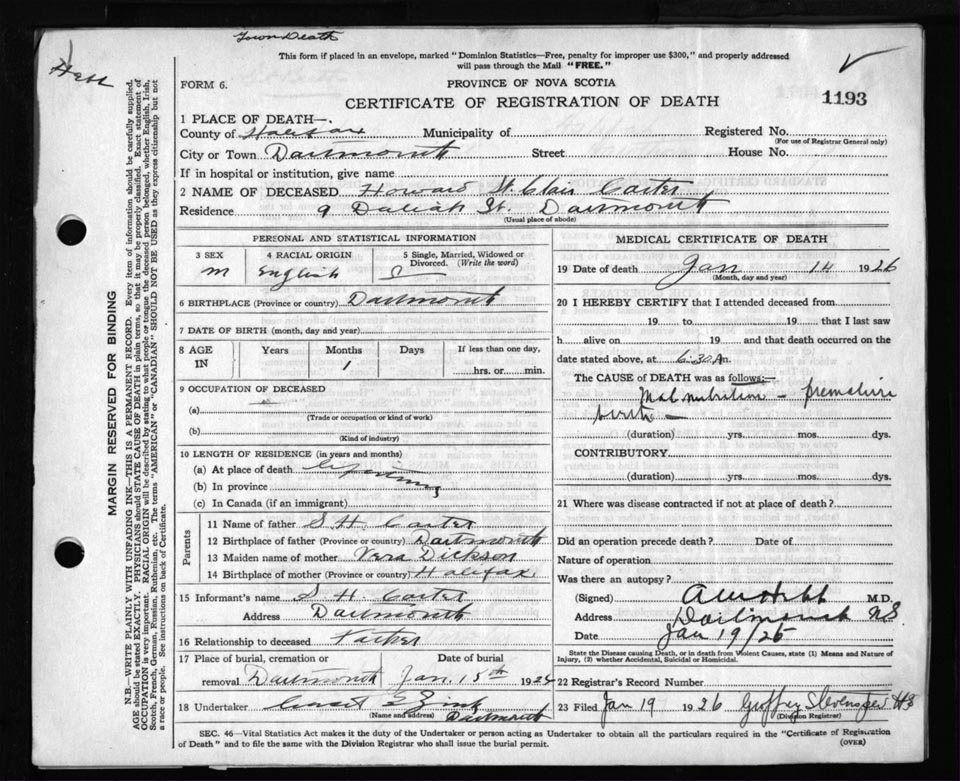 Town Death
This form if placed in an envelope, marked "Dominion Statistics—Free, penalty for improper use $300," and properly addressed
will pass through the Mail "FREE."
FORM 6.
PROVINCE OF NOVA SCOTIA
CERTIFICATE OF REGISTRATION OF DEATH
1193
1 PLACE OF DEATH—
County of Halifax Municipality of Registered No.
(For use of Registrar General only)
City or Town Dartmouth Street House No.
If in hospital or institution, give name
2 NAME OF DECEASED Howard St. Clair Carter
Residence 9 Daliah St. Dartmouth
(Usual place of abode)
PERSONAL AND STATISTICAL INFORMATION
3 SEX 4 RACIAL ORIGIN 5 Single, Married, Widowed or
Divorced. (Write the word)
M English S
6 BIRTHPLACE (Province or country) Dartmouth
7 DATE OF BIRTH (month, day and year)
8 AGE Years Months Days If less than one day,
IN 1 hrs. or min.
9 OCCUPATION OF DECEASED
(a)
(Trade or occupation or kind of work)
(b)
(Kind of industry)
10 LENGTH OF RESIDENCE (in years and months)
(a) At place of death
(b) In province
(c) In Canada (if an immigrant)
Parents
11 Name of father S H Carter
12 Birthplace of father (Province or country) Dartmouth
13 Maiden name of mother Vera Dickson
14 Birthplace of mother (Province or country) Halifax
15 Informant's name S H Carter
Address Dartmouth
16 Relationship to deceased Father
17 Place of burial, cremation or Date of burial
removal Dartmouth Jan 15th 1926
18 Undertaker Zink
(Name and address) Dartmouth
MEDICAL CERTIFICATE OF DEATH
19 Date of death Jan 14 1926
(Month, day and year)
20 I HEREBY CERTIFY that I attended deceased from
19 to 19 that I last saw
h alive on 19 and that death occurred on the
date stated above, at 6.30 A m.
The CAUSE OF DEATH was as follows:—
Malnutrition – premature
birth –
(duration) yrs. mos. dys.
CONTRIBUTORY.
(duration) yrs. mos. dys.
21 Where was disease contracted if not at place of death?
Did an operation precede death? Date of
Nature of operation
Was there an autopsy?
(Signed) M.D.
Address Dartmouth NS
Date Jan 19/26
State the Disease causing Death, or in death from Violent Causes, state (1) Means and Nature of
Injury, (2) whether Accidental, Suicidal or Homicidal.
22 Registrar's Record Number
23 Filed Jan 19 1926
(Division Registrar)
SEC. 46—Vital Statistics Act makes it the duty of the Undertaker or person acting as Undertaker to obtain all the particulars required in the "Certificate of Registration
of Death" and to file the same with the Division Registrar who shall issue the burial permit.
(OVER)
MARGIN RESERVED FOR BINDING
N.B.—WRITE PLAINLY WITH UNFADING INK—THIS IS A PERMANENT RECORD. Every item of information should be carefully supplied.
AGE should be stated EXACTLY. PHYSICIANS should STATE CAUSE OF DEATH in plain terms, so that it may be properly classified. Exact statement of
OCCUPATION is very important. RACIAL ORIGIN will be described by stating to what people or tongue the deceased person belonged, whether English, Irish,
Scotch, French, German, Russian, Ruthenian, etc. The terms "AMERICAN" or "CANADIAN" SHOULD NOT BE USED as they express citizenship but not
a race or people. See instructions on back of Certificate.